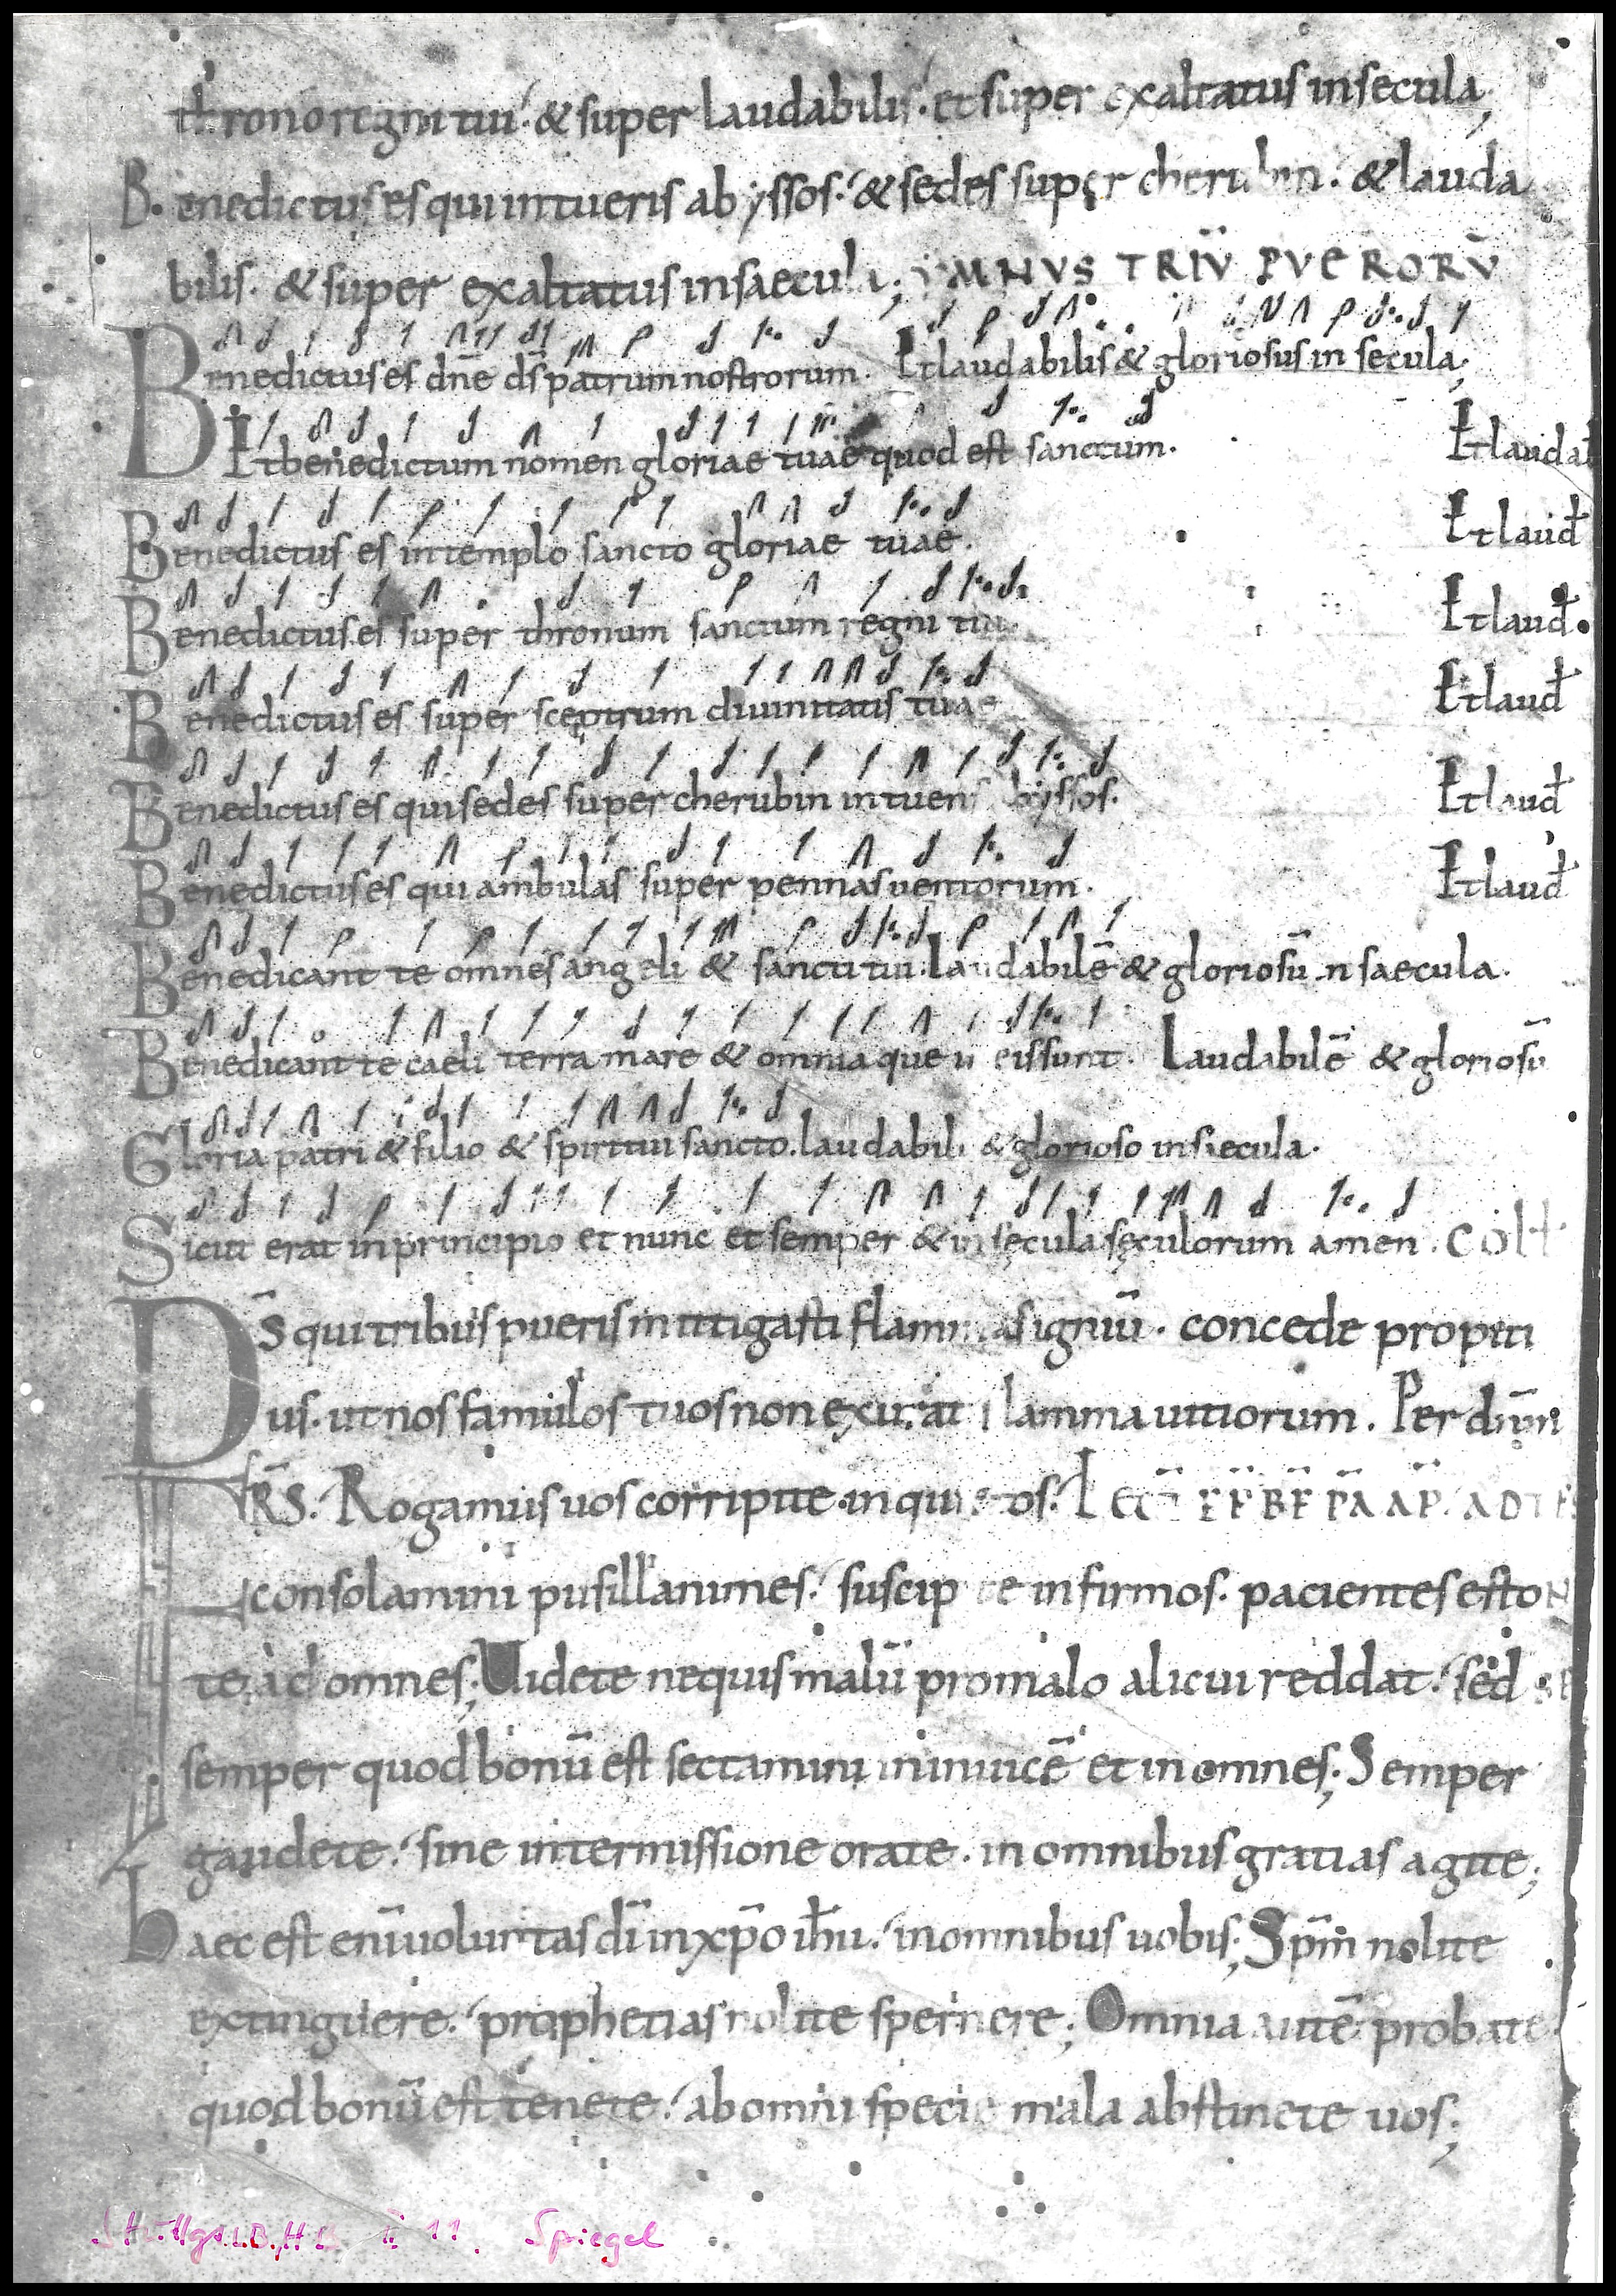 throno regni tui. & super laudabilis. et super exaltatus in secula;
B. enedictus es qui intueris abyssos. & sedes super cherubin. & lauda
bilis. & super exaltatus in saecula; YMNVS TRIŪ PVERORŪ
Benedictus es dn̄e ds̄ patrum nostrorum. Et laudabilis & gloriosus in secula;
Et benedictum nomen gloriae tuae quod est sanctum. Et laudab
Benedictus es in templo sancto gloriae tuae. Et laud
Benedictus es super thronum sanctum regni tui. Et laud.
Benedictus es super sceptrum diuinitatis tuae Et laud
Benedictus es qui sedes super cherubin intuens byssos. Et laud
Benedictus es qui ambulas super pennas uentorum. Et laud
Benedicant te omnes angeli & sancti tui. Laudabilē & gloriosū in saecula.
Benedicant te caeli terra mare & omnia que in eis sunt. Laudabilē & gloriosū
Gloria patri & filio & spiritui sancto. laudabili & glorioso in saecula.
Sicut erat in principio et nunc et semper & in sęcula sęculorum amen. COLL
Ds̄ qui tribus pueris mitigasti flammas igniū. concede propiti
us. ut nos famulos tuos non exurat flamma uitiorum. Per dn̄m
FRS̄. Rogamus uos corripite inquietos. LECT
consolamini pusillanimes. suscipite infirmos. pacientes esto
te ad omnes; Uidete nequis malū pro malo alicui reddat. sed
semper quod bonū est sectamini in inuicē et in omnes; Semper
gaudete. sine intermissione orate. in omnibus gratias agite;
haec est eni̅ uoluntas dī in xp̄o ih̄u. in omnibus uobis; Sp̄m nolite
extinguere. prophetias nolite spernere; Omnia autē probate
quod bonū est tenete. ab omni specie mala abstinete uos;
Spiegel